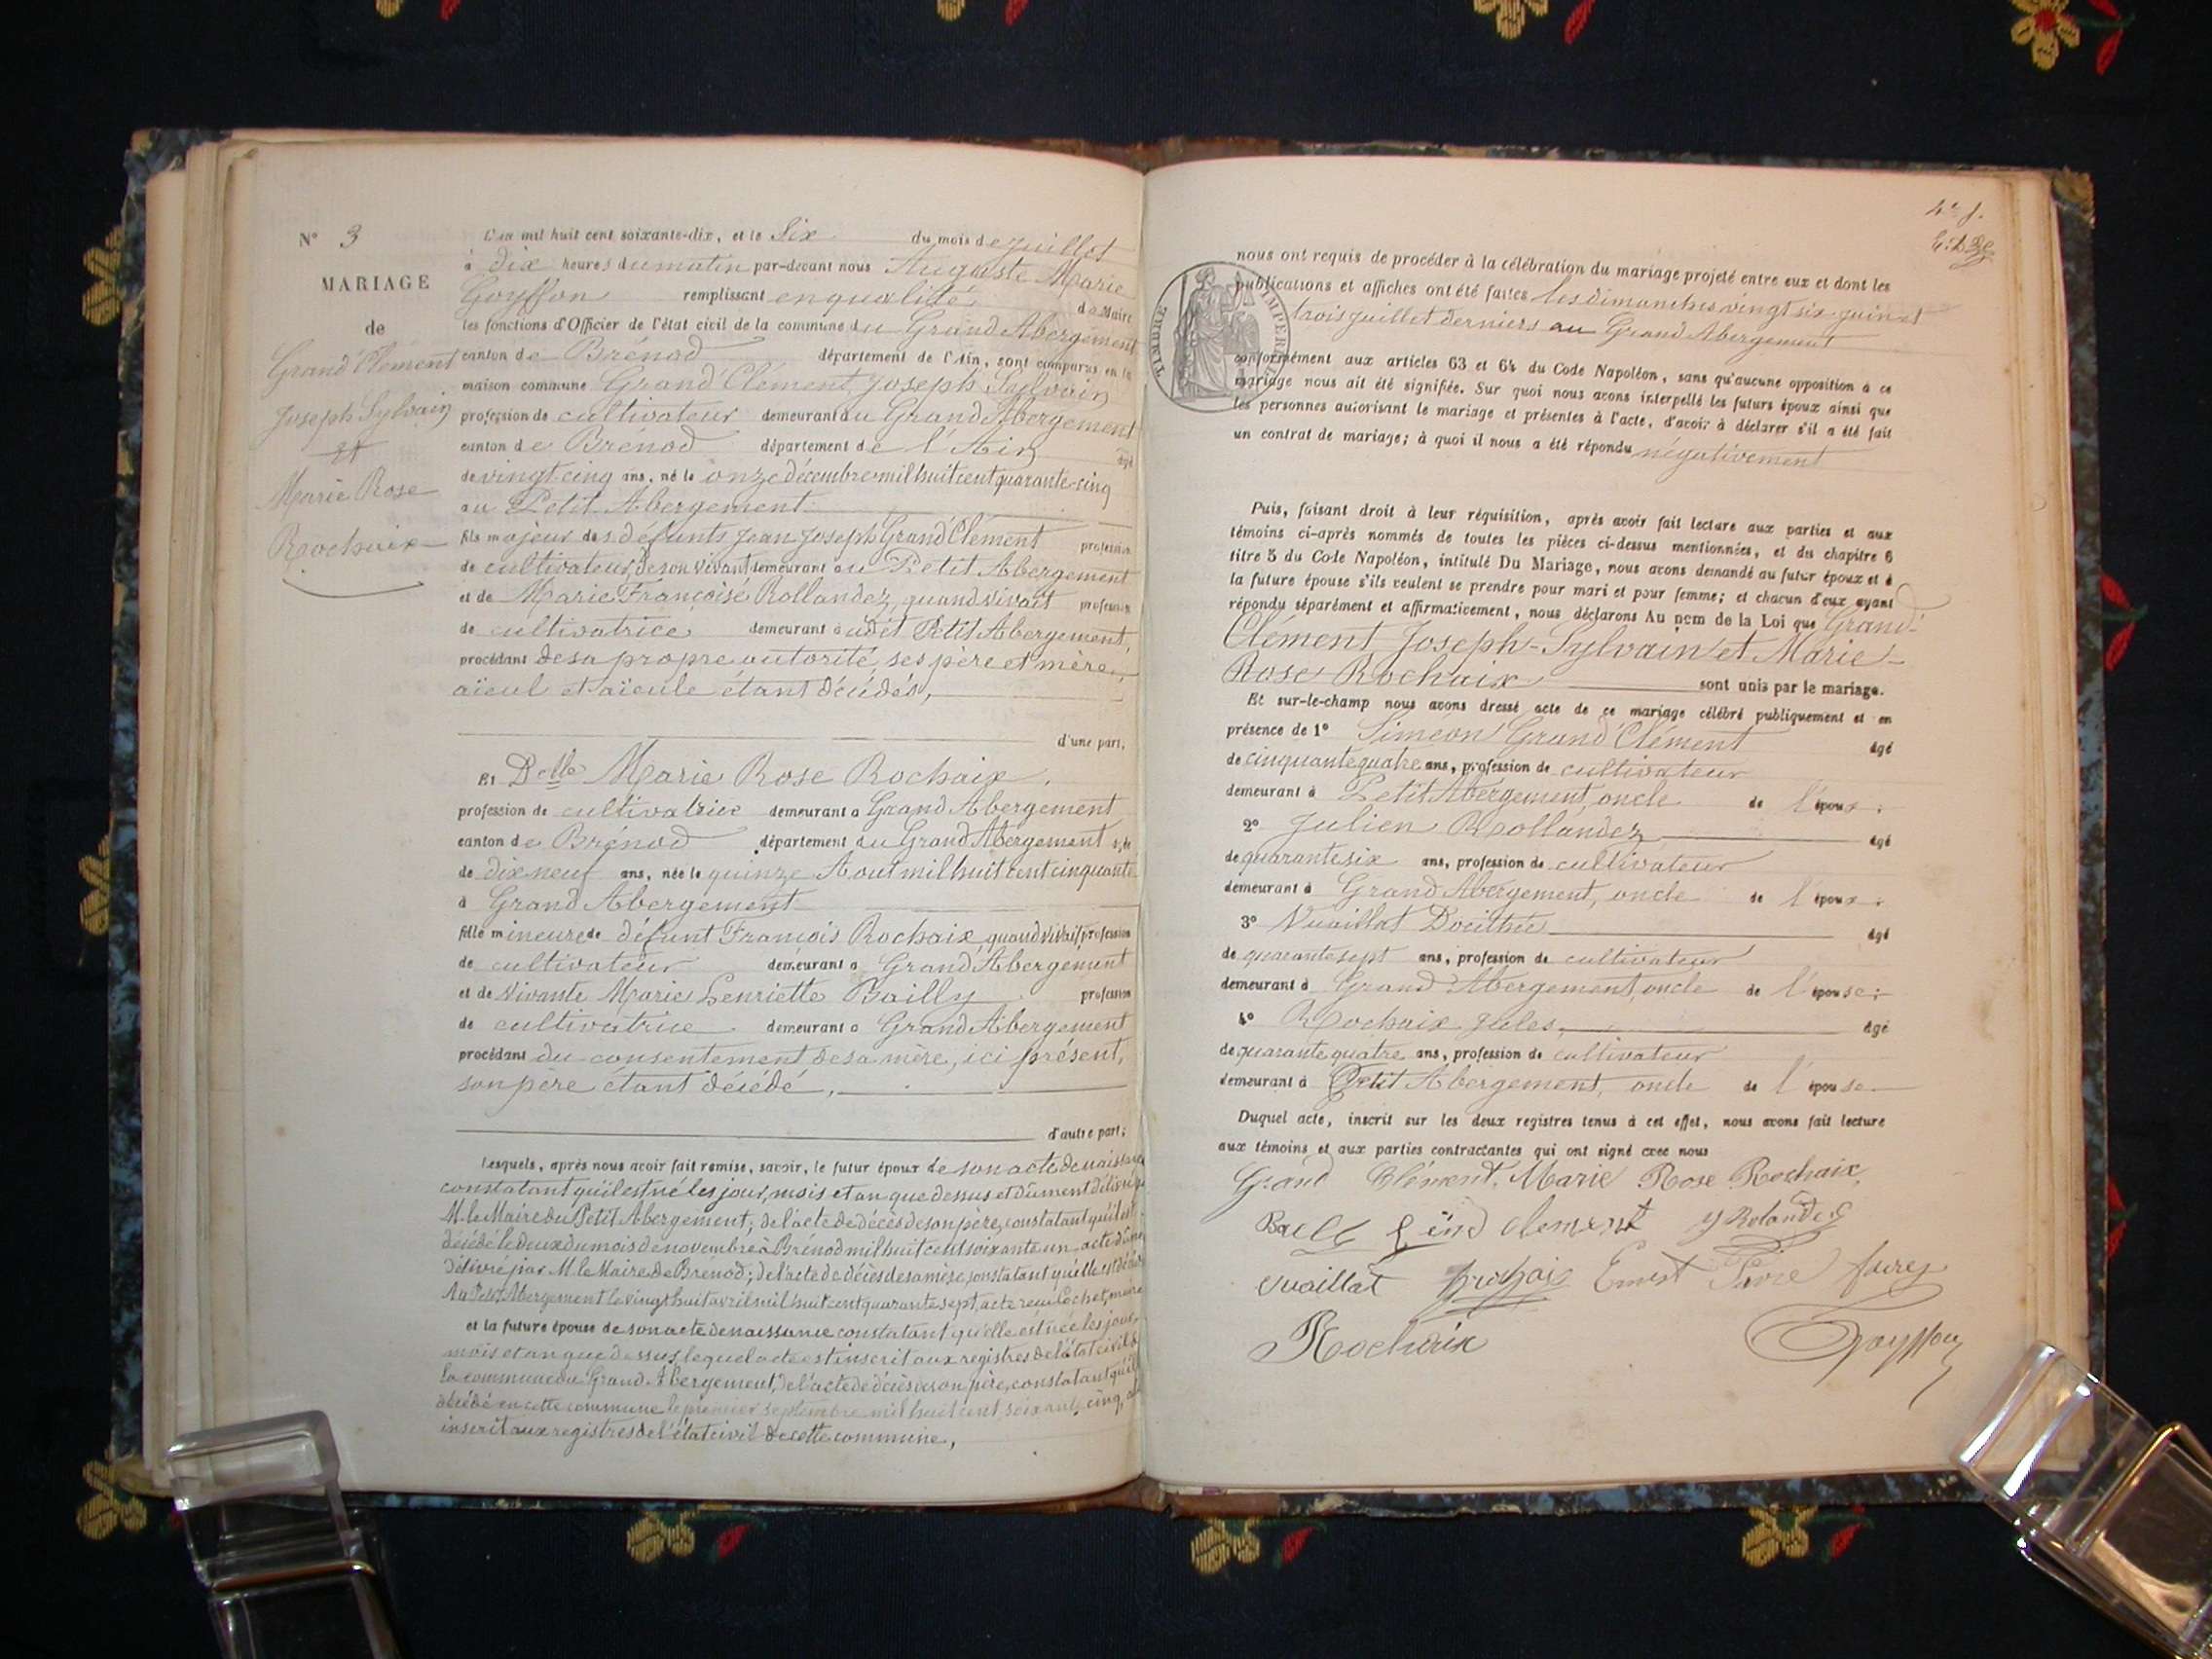 N° 3
MARIAGE
de
Grand'Clément
Joseph Sylvain
et
Marie Rose
Rochaix
L'an mil huit cent soixante-dix, et le Six du mois de juillet
à dix heures du matin par-devant nous Auguste Marie
Goyffon remplissant en qualité de Maire
les fonctions d'Officier de l'état civil de la commune du Grand Abergement
canton de Brénod département de l'Ain, sont comparus en la
maison commune Grand'Clément Joseph Sylvain
profession de cultivateur demeurant au Grand Abergement
canton de Brenod département de l'Ain âgé
de vingt cinq ans, né le onze décembre mil huit cent quarante-cinq
au Petit Abergement
fils majeur des défunts Jean Joseph Grand'Clément profession
de cultivateur, de son vivant demeurant au Petit Abergement
et de Marie Françoise Rollandez, quand vivait profession
de cultivatrice demeurant audit Petit Abergement,
procédant de sa propre autorité, ses père et mère,
aïeul et aïeule étant décédés,
d'une part,
Et Delle Marie Rose Rochaix,
profession de cultivatrice demeurant a Grand Abergement
canton de Brénod département du Grand Abergement âgée
de dix neuf ans, née le quinze Aout mil huit cent cinquante
à Grand Abergement
fille mineure de défunt François Rochaix, quand vivait, profession
de cultivateur demeurant a Grand Abergement
et de vivante Marie Henriette Bailly profession
de cultivatrice demeurant a Grand Abergement
procédant du consentement de sa mère, ici présent,
son père étant décédé,
d'autre part;
Lesquels, après nous avoir fait remise, savoir, le futur époux de son acte de naissance
constatant qu'il est né les jour, mois et an que dessus et dûment délivré par
M. le Maire du Petit Abergement; de l'acte de décès de son père, constatant qu'il est
décédé le deux du mois de novembre à Brénod mil huit cent soixante un, acte
délivré par M. le Maire de Brenod; de l'acte de décès de sa mère, constatant qu'elle est décédée
Au Petit Abergement le vingt huit avril mil huit cent quarante sept, acte
et la future épouse de son acte de naissance constatant qu'elle est née les jour,
mois et an que dessus, lequel acte est inscrit aux registres de l'état civil de
la commune du Grand Abergement, de l'acte de décès de son père, constatant qu'il est
décédé en cette commune le premier septembre mil huit cent soixante cinq,
inscrit aux registres de l'état civil de cette commune,
TIMBRE IMPERIAL
nous ont requis de procéder à la célébration du mariage projeté entre eux et dont les
publications et affiches ont été faites les dimanches vingt six juin et
trois juillet derniers au Grand Abergement
conformément aux articles 63 et 64 du Code Napoléon, sans qu'aucune opposition à ce
mariage nous ait été signifiée. Sur quoi nous avons interpellé les futurs époux ainsi que
les personnes autorisant le mariage et présentes à l'acte, d'avoir à déclarer s'il a été fait
un contrat de mariage; à quoi il nous a été répondu négativement
Puis, faisant droit à leur réquisition, après avoir fait lecture aux parties et aux
témoins ci-après nommés de toutes les pièces ci-dessus mentionnées, et du chapitre 6
titre 5 du Code Napoléon, intitulé Du Mariage, nous avons demandé au futur époux et à
la future épouse s'ils veulent se prendre pour mari et pour femme; et chacun d'eux ayant
répondu séparément et affirmativement, nous déclarons Au nom de la Loi que Grand-
Clément Joseph-Sylvain et Marie-
Rose Rochaix sont unis par le mariage.
Et sur-le-champ nous avons dressé acte de ce mariage célébré publiquement et en
présence de 1° Siméon Grand'Clément âgé
de cinquante quatre ans, profession de cultivateur
demeurant à Petit Abergement, oncle de l'époux;
2° Julien Rollandez âgé
de quarante six ans, profession de cultivateur
demeurant à Grand Abergement, oncle de l'époux;
3° Vuaillat Docithée âgé
de quarante sept ans, profession de cultivateur
demeurant à Grand Abergement, oncle de l'épouse;
4° Rochaix Jules, âgé
de quarante quatre ans, profession de cultivateur
demeurant à Petit Abergement, oncle de l'épouse
Duquel acte, inscrit sur les deux registres tenus à cet effet, nous avons fait lecture
aux témoins et aux parties contractantes qui ont signé avec nous
Grand Clément, Marie Rose Rochaix,
clement J Rolandez
vuaillat Ernest
Rochaix Goyffon